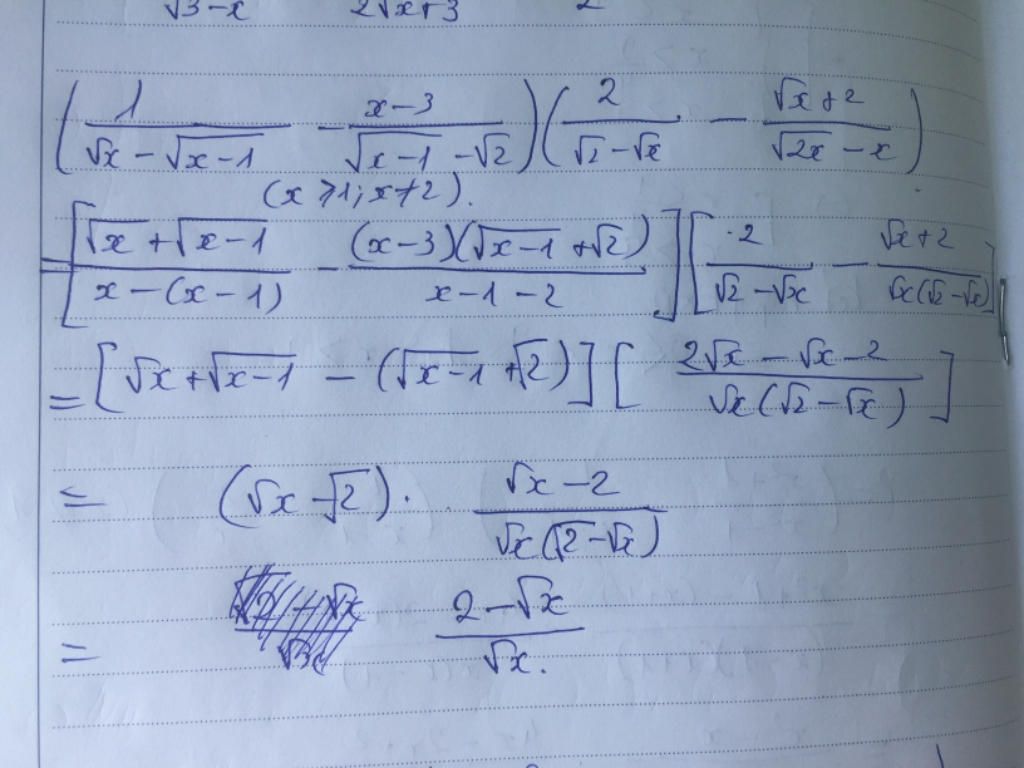 √3-x 2√x+3 2
(1/(√x - √(x-1)) - (x-3)/(√(x-1) - √2)) (2/(√2 - √x) - (√x+2)/(√(2x) - x))
(x ≥ 1; x ≠ 2).
= [(√x + √(x-1))/(x - (x-1)) - (x-3)(√(x-1) + √2)/(x-1-2)] [2/(√2 - √x) - (√x+2)/(√x(√2 - √x))]
= [√x + √(x-1) - (√(x-1) + √2)] [(2√x - √x - 2)/(√x(√2 - √x))]
= (√x - √2) · (√x - 2)/(√x(√2 - √x))
= (2 - √x)/√x.